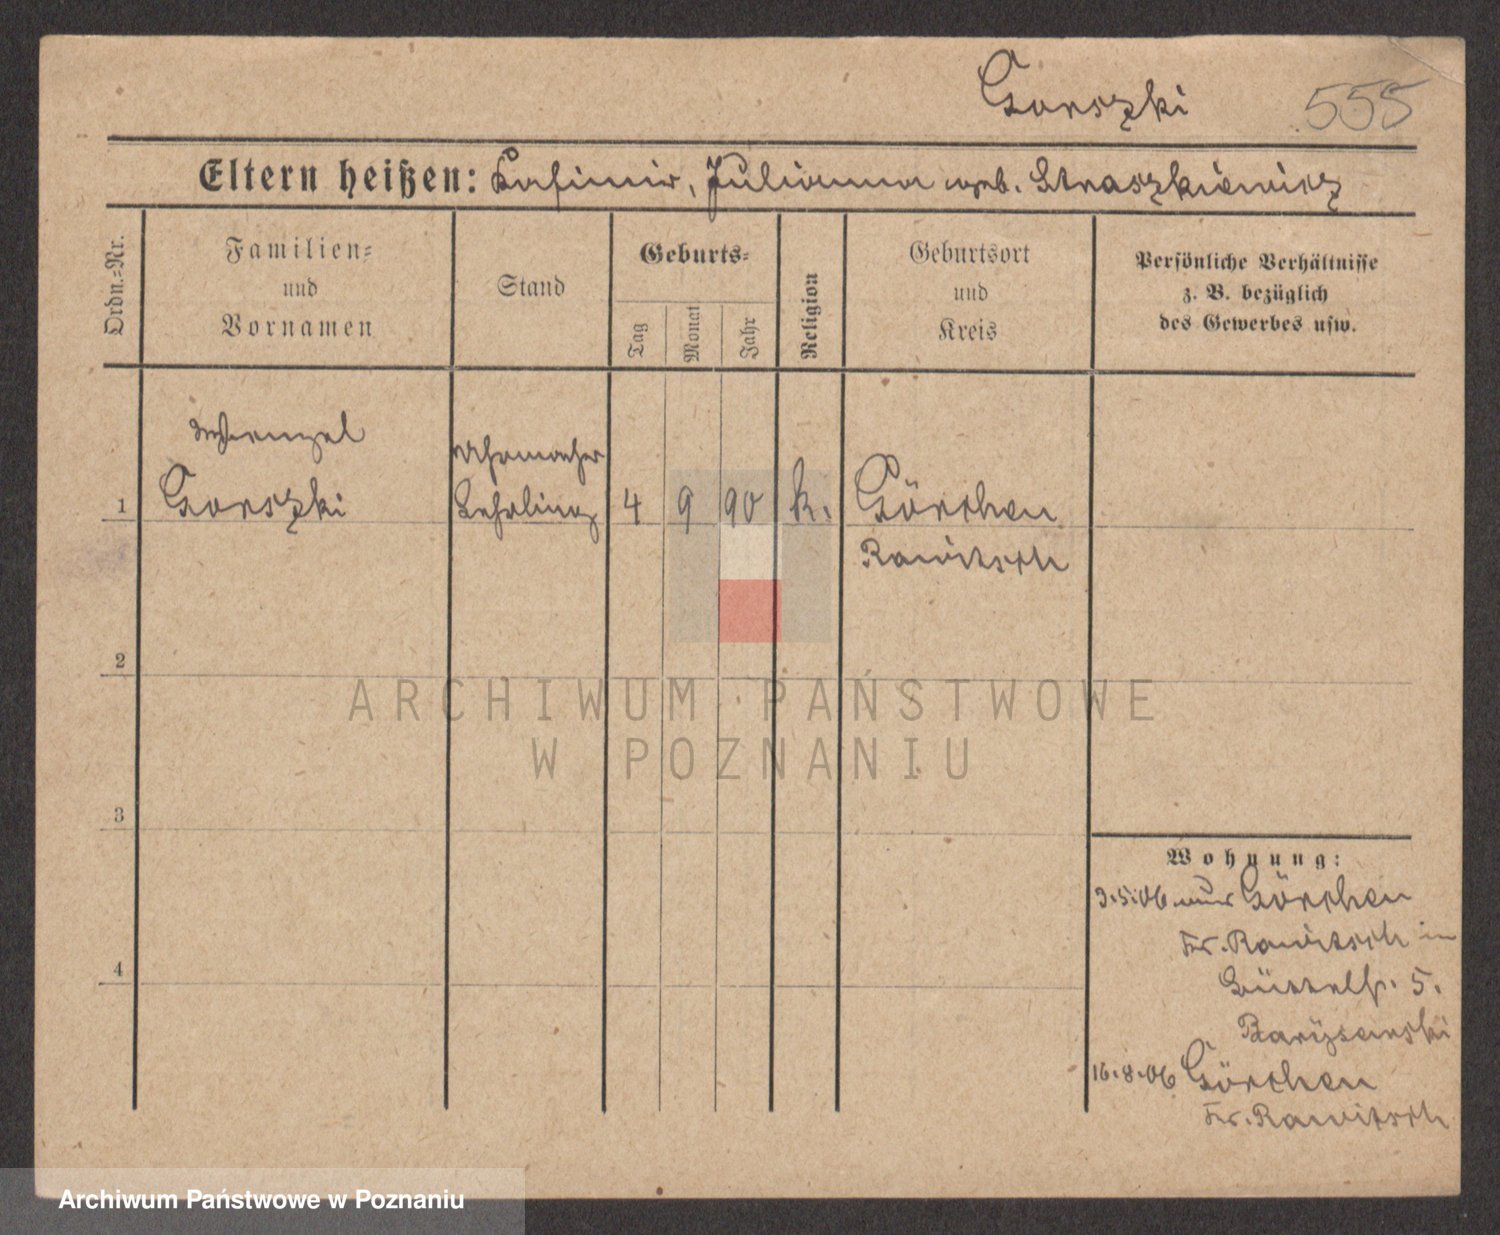 Gorszki 555
Eltern heißen: Kasimir, Julianna geb. Straszkiewicz
Ordn.-Nr.
Familien-
und
Vornamen
Stand
Geburts-
Tag
Monat
Jahr
Religion
Geburtsort
und
Kreis
Persönliche Verhältnisse
z. B. bezüglich
des Gewerbes usw.
Wenzel
Uhrmacher
1 Gorszki Lehrling 4 9 90 k. Görchen
Rawitsch
2
ARCHIWUM PAŃSTWOWE
W POZNANIU
3
Wohnung:
3.5.06 aus Görchen
Kr. Rawitsch in
4
Büttelstr. 5.
16.8.06 Görchen
Kr. Rawitsch
Archiwum Państwowe w Poznaniu